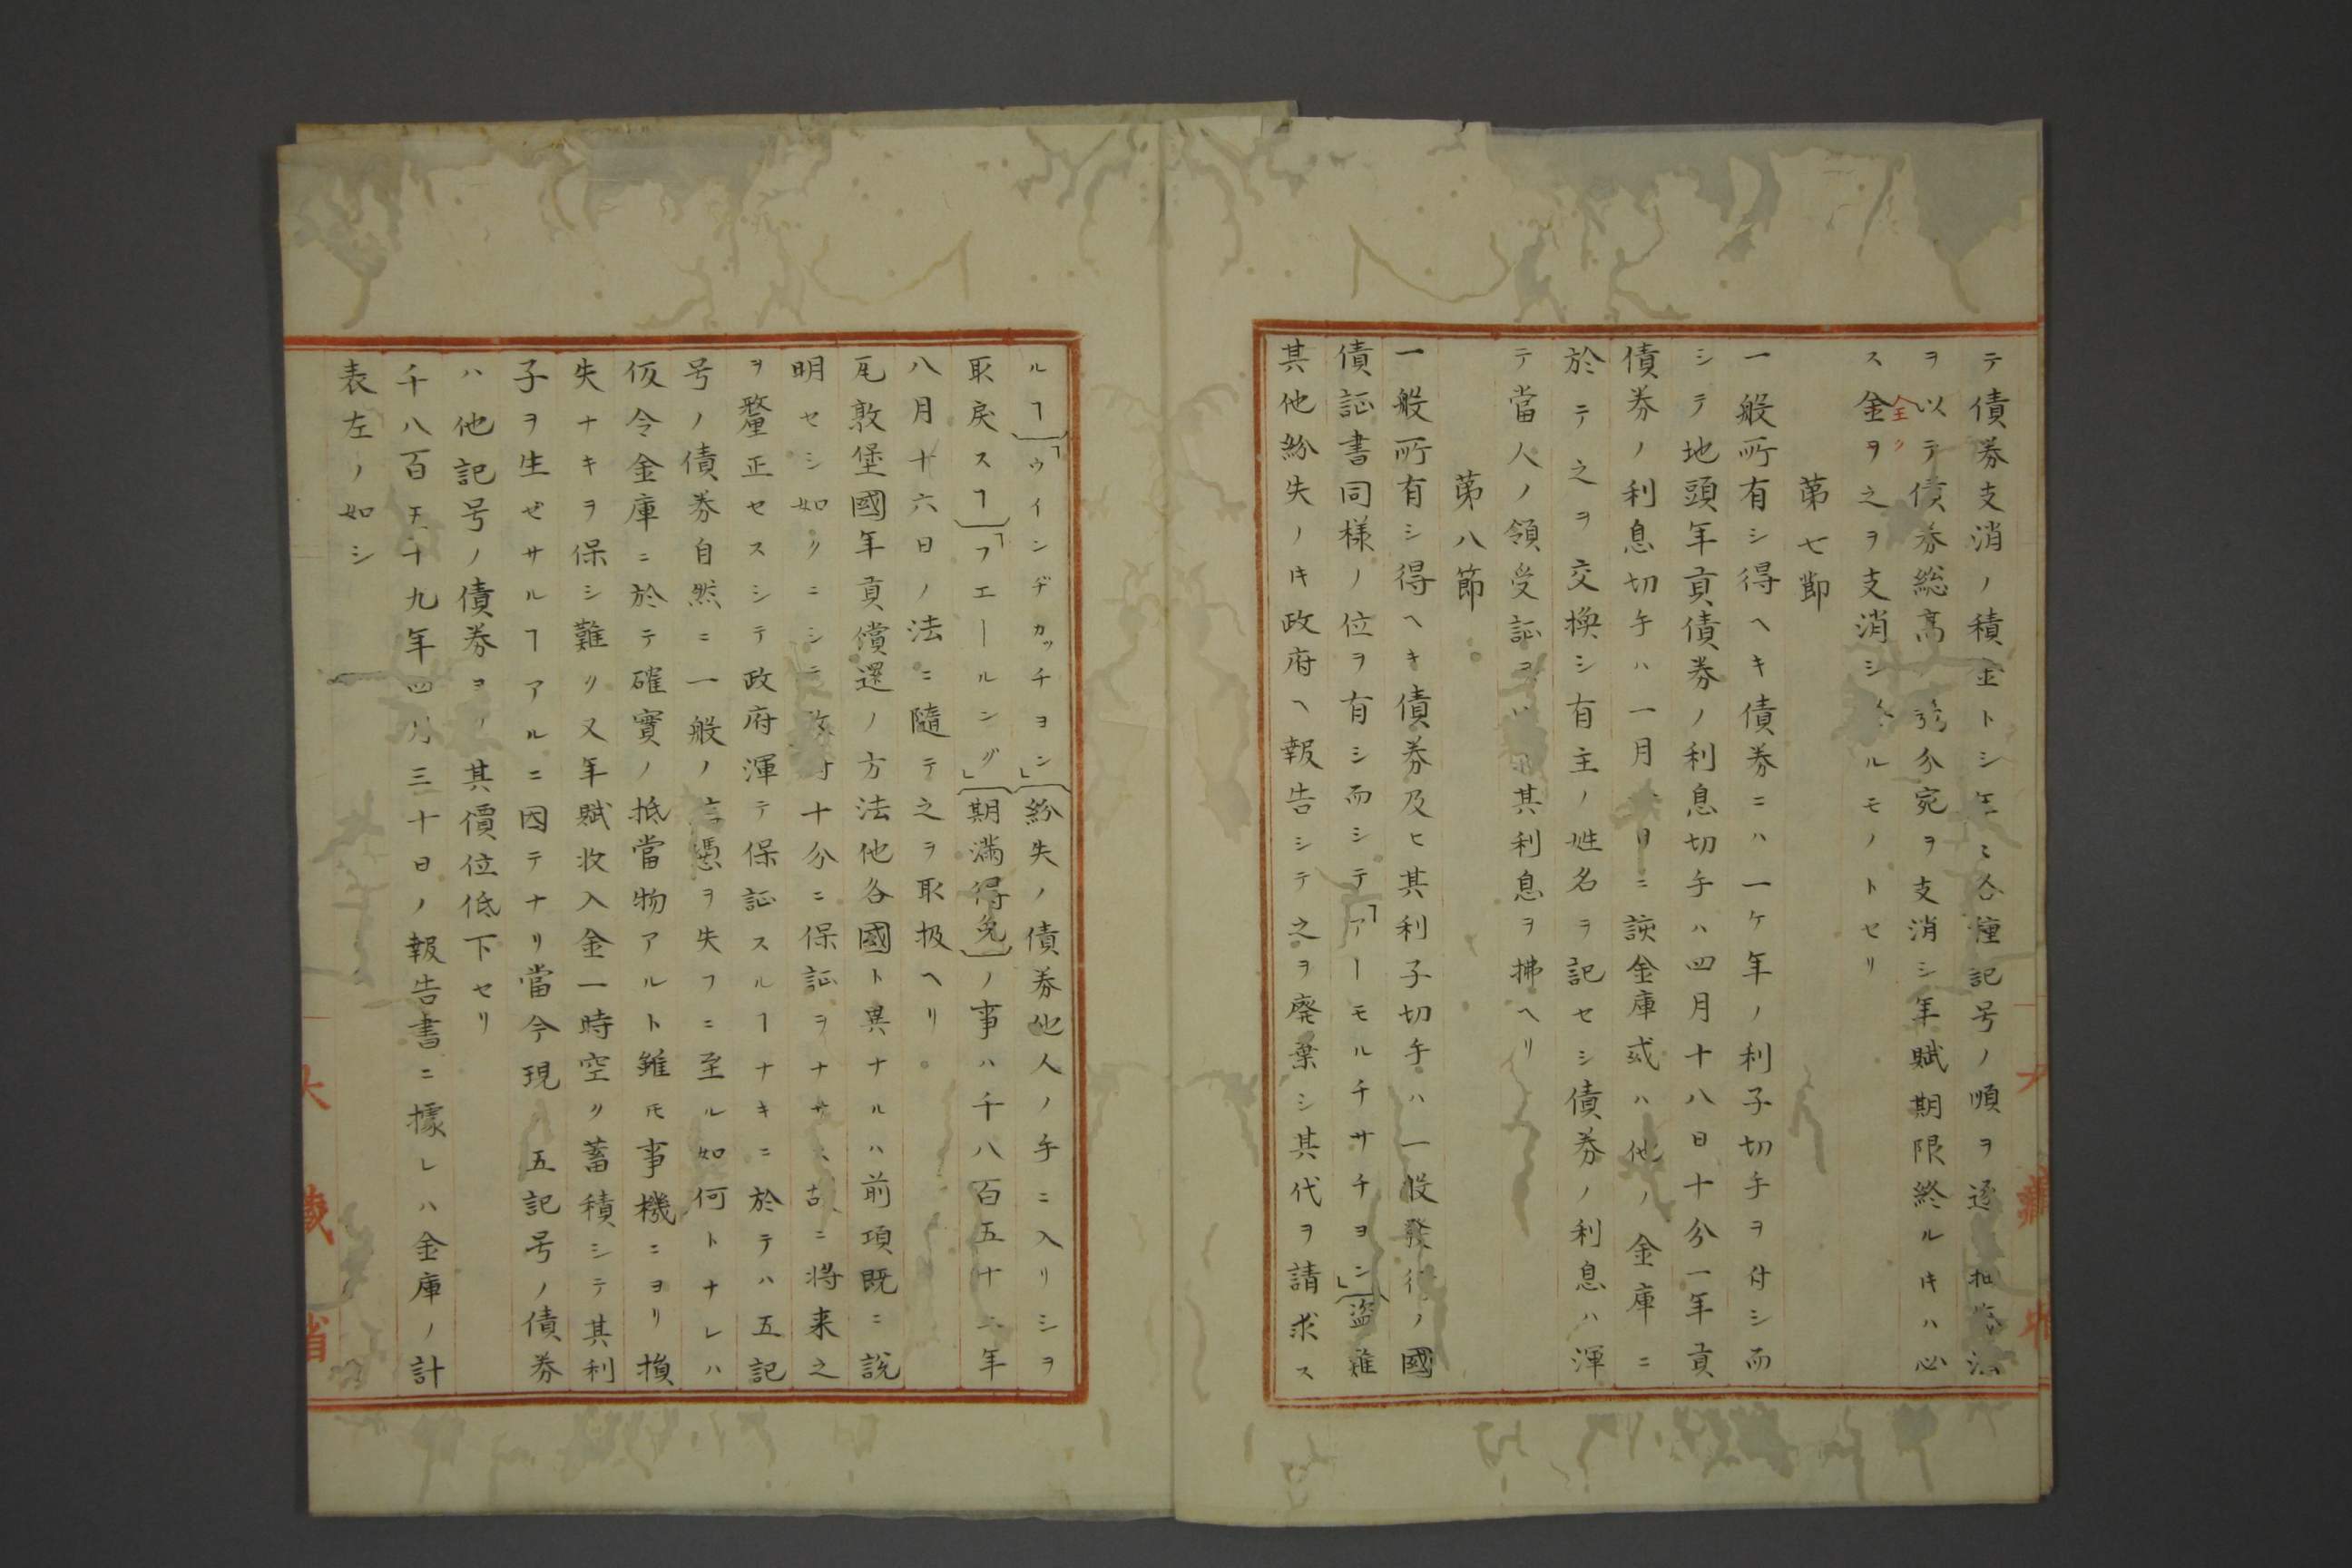 テ債券支消ノ積金トシ年々各種記号ノ順ヲ逐
ヲ以テ債券総高ノ弐分宛ヲ支消シ年賦期限終ルキハ必
ス金ヲ之ヲ支消シ ルモノトセリ
全ク
第七節
一般所有シ得ヘキ債券ニハ一ケ年ノ利子切手ヲ付シ而
シテ地頭年貢債券ノ利息切手ハ四月十八日十分一年貢
債券ノ利息切手ハ一月 日ニ該金庫或ハ他ノ金庫ニ
於テ之ヲ交換シ有主ノ姓名ヲ記セシ債券ノ利息ハ渾
テ當人ノ領受証ヲ以 其利息ヲ拂ヘリ
第八節
一般所有シ得ヘキ債券及ヒ其利子切手ハ一般發行ノ國
債証書同様ノ位ヲ有シ而シテ「アーモルチサチヨン」盗難
其他紛失ノキ政府ヘ報告シテ之ヲ廃棄シ其代ヲ請求ス
ルヿ「ウインヂカッチヨン」紛失ノ債券他人ノ手ニ入リシヲ
取戻スヿ「フエールング」期満得免ノ事ハ千八百五十二年
八月十六日ノ法ニ随テ之ヲ取扱ヘリ。
瓦敦堡國年貢償還ノ方法他各國ト異ナルハ前項既ニ説
明セシ如クニシテ政府十分ニ保証ヲナサス故ニ将来之
ヲ釐正セスシテ政府渾テ保証スルヿナキニ於テハ五記
号ノ債券自然ニ一般ノ信憑ヲ失フニ至ル如何トナレハ
仮令金庫ニ於テ確實ノ抵當物アルト雖モ事機ニヨリ損
失ナキヲ保シ難ク又年賦收入金一時空ク蓄積シテ其利
子ヲ生ゼサルヿアルニ因テナリ當今現ニ五記号ノ債券
ハ他記号ノ債券ヨリ其價位低下セリ
千八百五十九年四月三十日ノ報告書ニ據レハ金庫ノ計
表左ノ如シ
大藏省